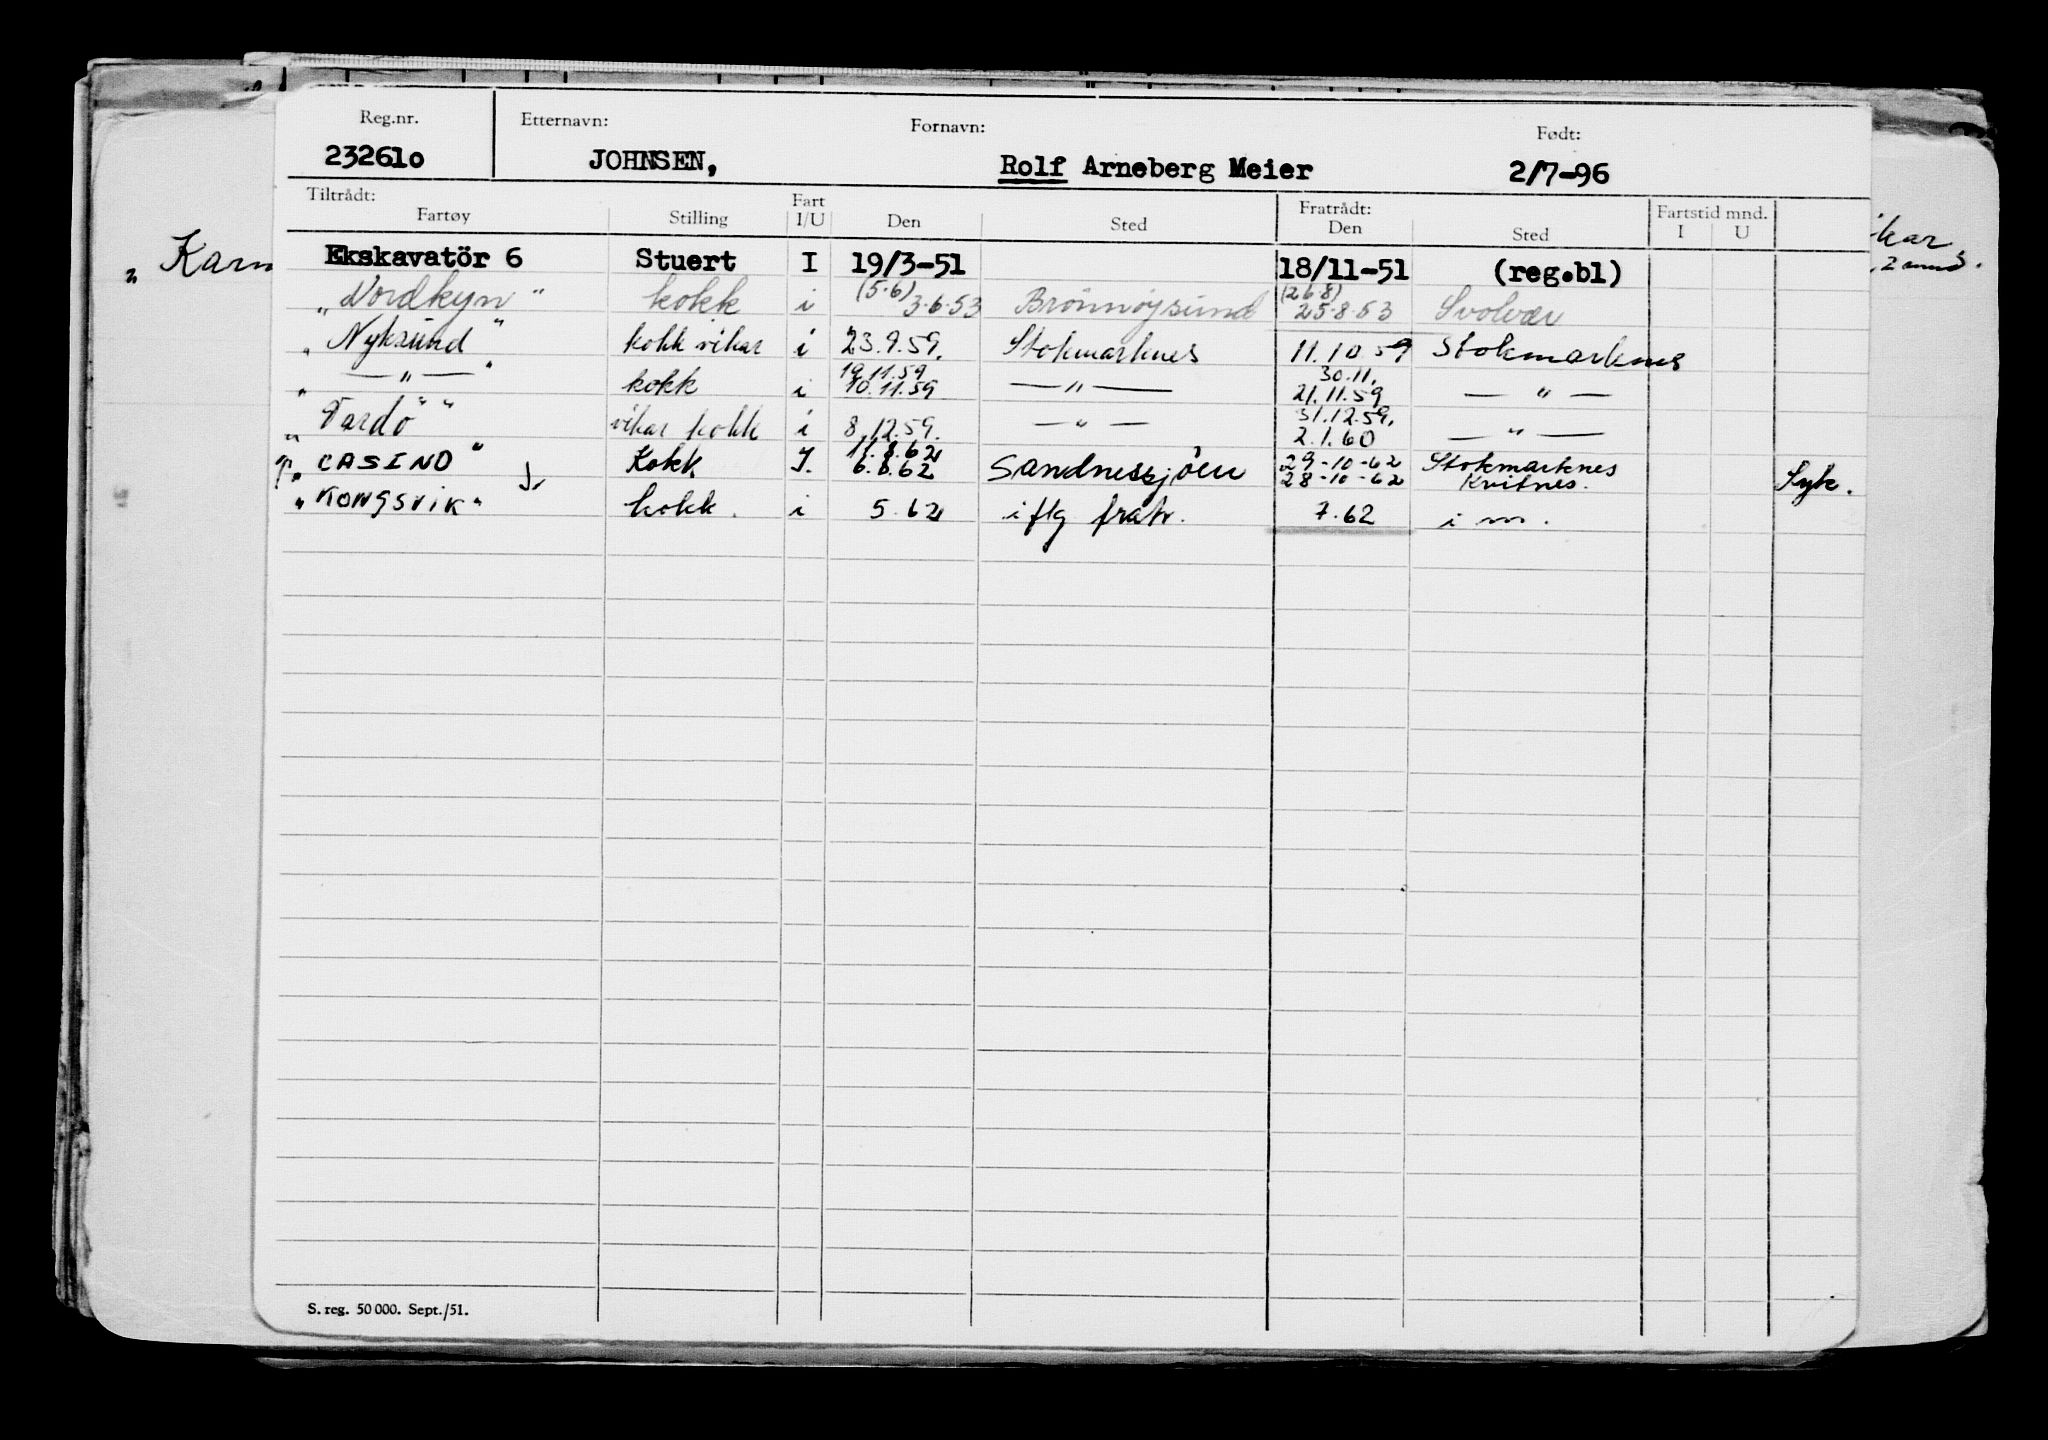 Reg.nr. Etternavn: Fornavn: Født:
232610 JOHNSEN, Rolf Arneberg Meier 2/7-96
Tiltrådt: Fartøy Stilling Fart I/U Den Sted Fratrådt: Den Sted Fartstid mnd. I U
Ekskavatör 6 Stuert I 19/3-51 18/11-51 (reg.bl)
(5.6) (26.8)
„Nordkyn" kokk i 3.6.53 Brönnöysund 25.8.53 Svolvær
„Nyksund" kokk vikar i 23.9.59. Stokmarknes 11.10.59 Stokmarknes
19.11.59 30.11.
„ — " — " kokk i 10.11.59 — " — 21.11.59 — " —
31.12.59.
„ Vardö " vikar kokk i 8.12.59. — " — 2.1.60 — " —
11.8.62 29-10-62 Stokmarknes
„CASINO" Kokk I. 6.8.62 Sandnessjöen 28-10-62 Kvitnes. Syk.
„KONGSVIK" kokk. i 5.62 i flg fratr. 7.62 i m.
S. reg. 50 000. Sept./51.
„ Karm